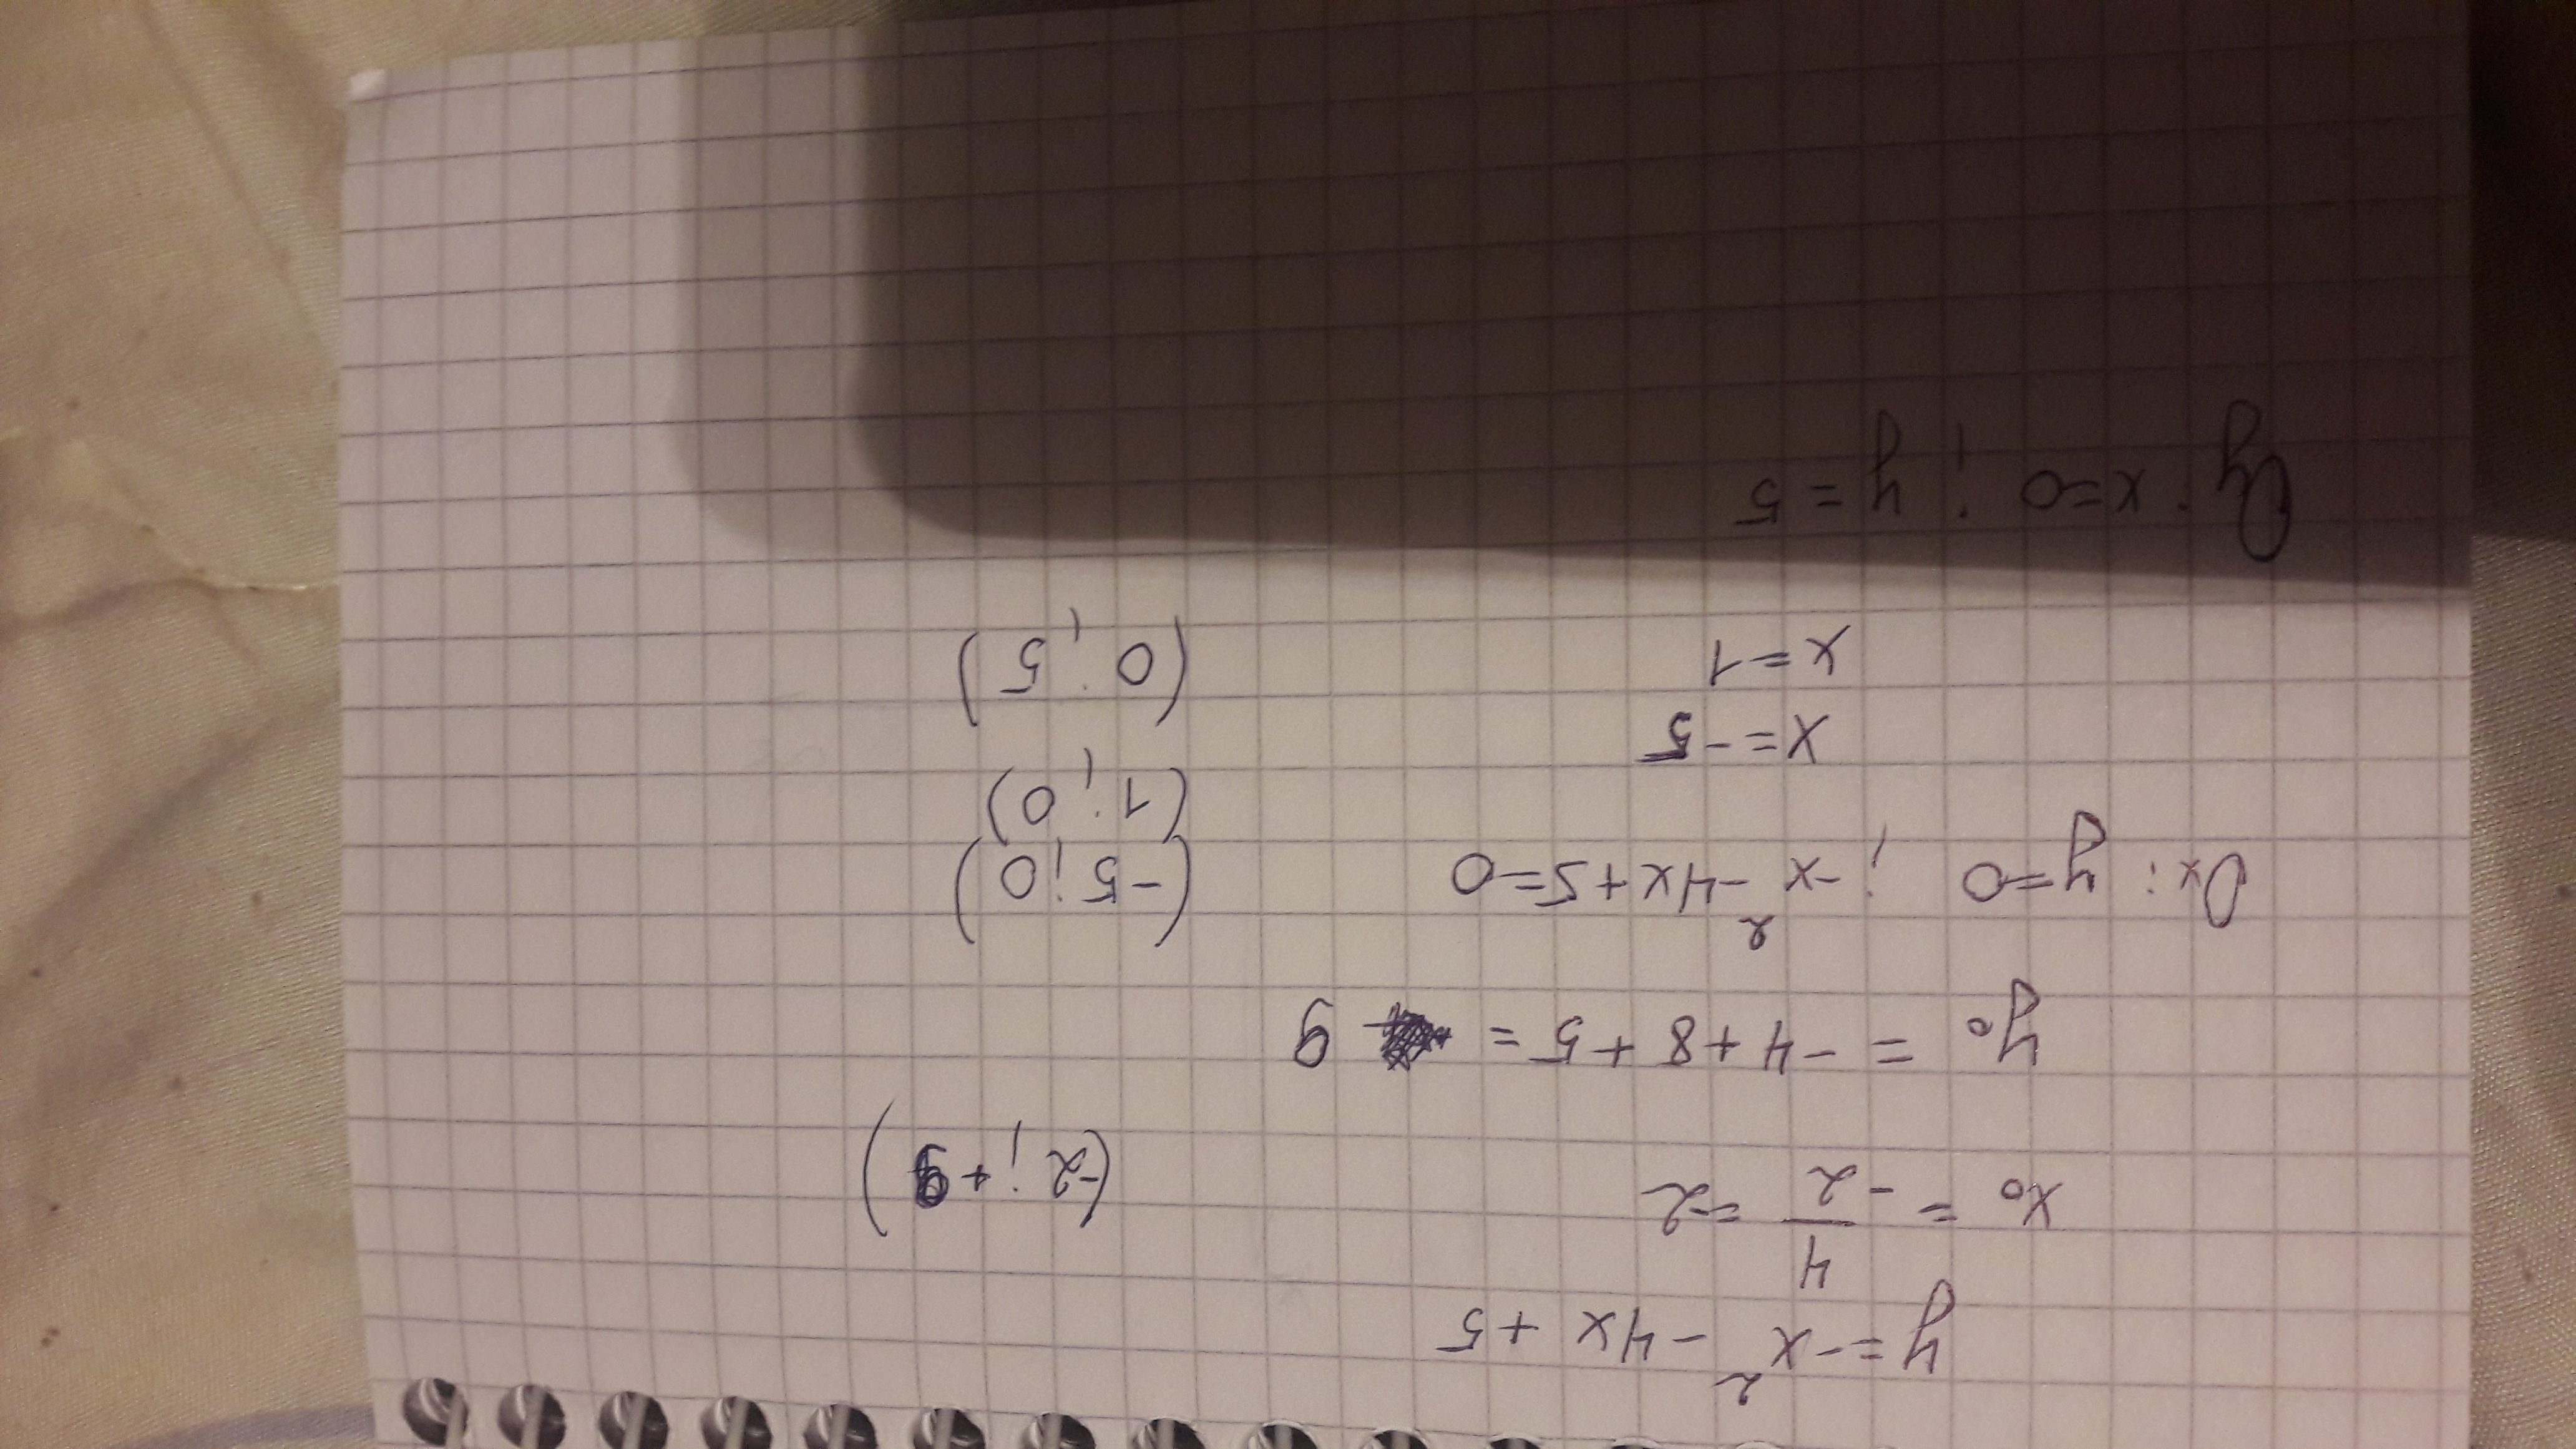 y = -x² - 4x + 5
x₀ = 4/-2 = -2
(-2; +9)
y₀ = -4 + 8 + 5 = 9
Ox: y=0; -x² - 4x + 5 = 0
(-5; 0)
x = -5
(1; 0)
x = 1
(0; 5)
Oy: x=0; y = 5